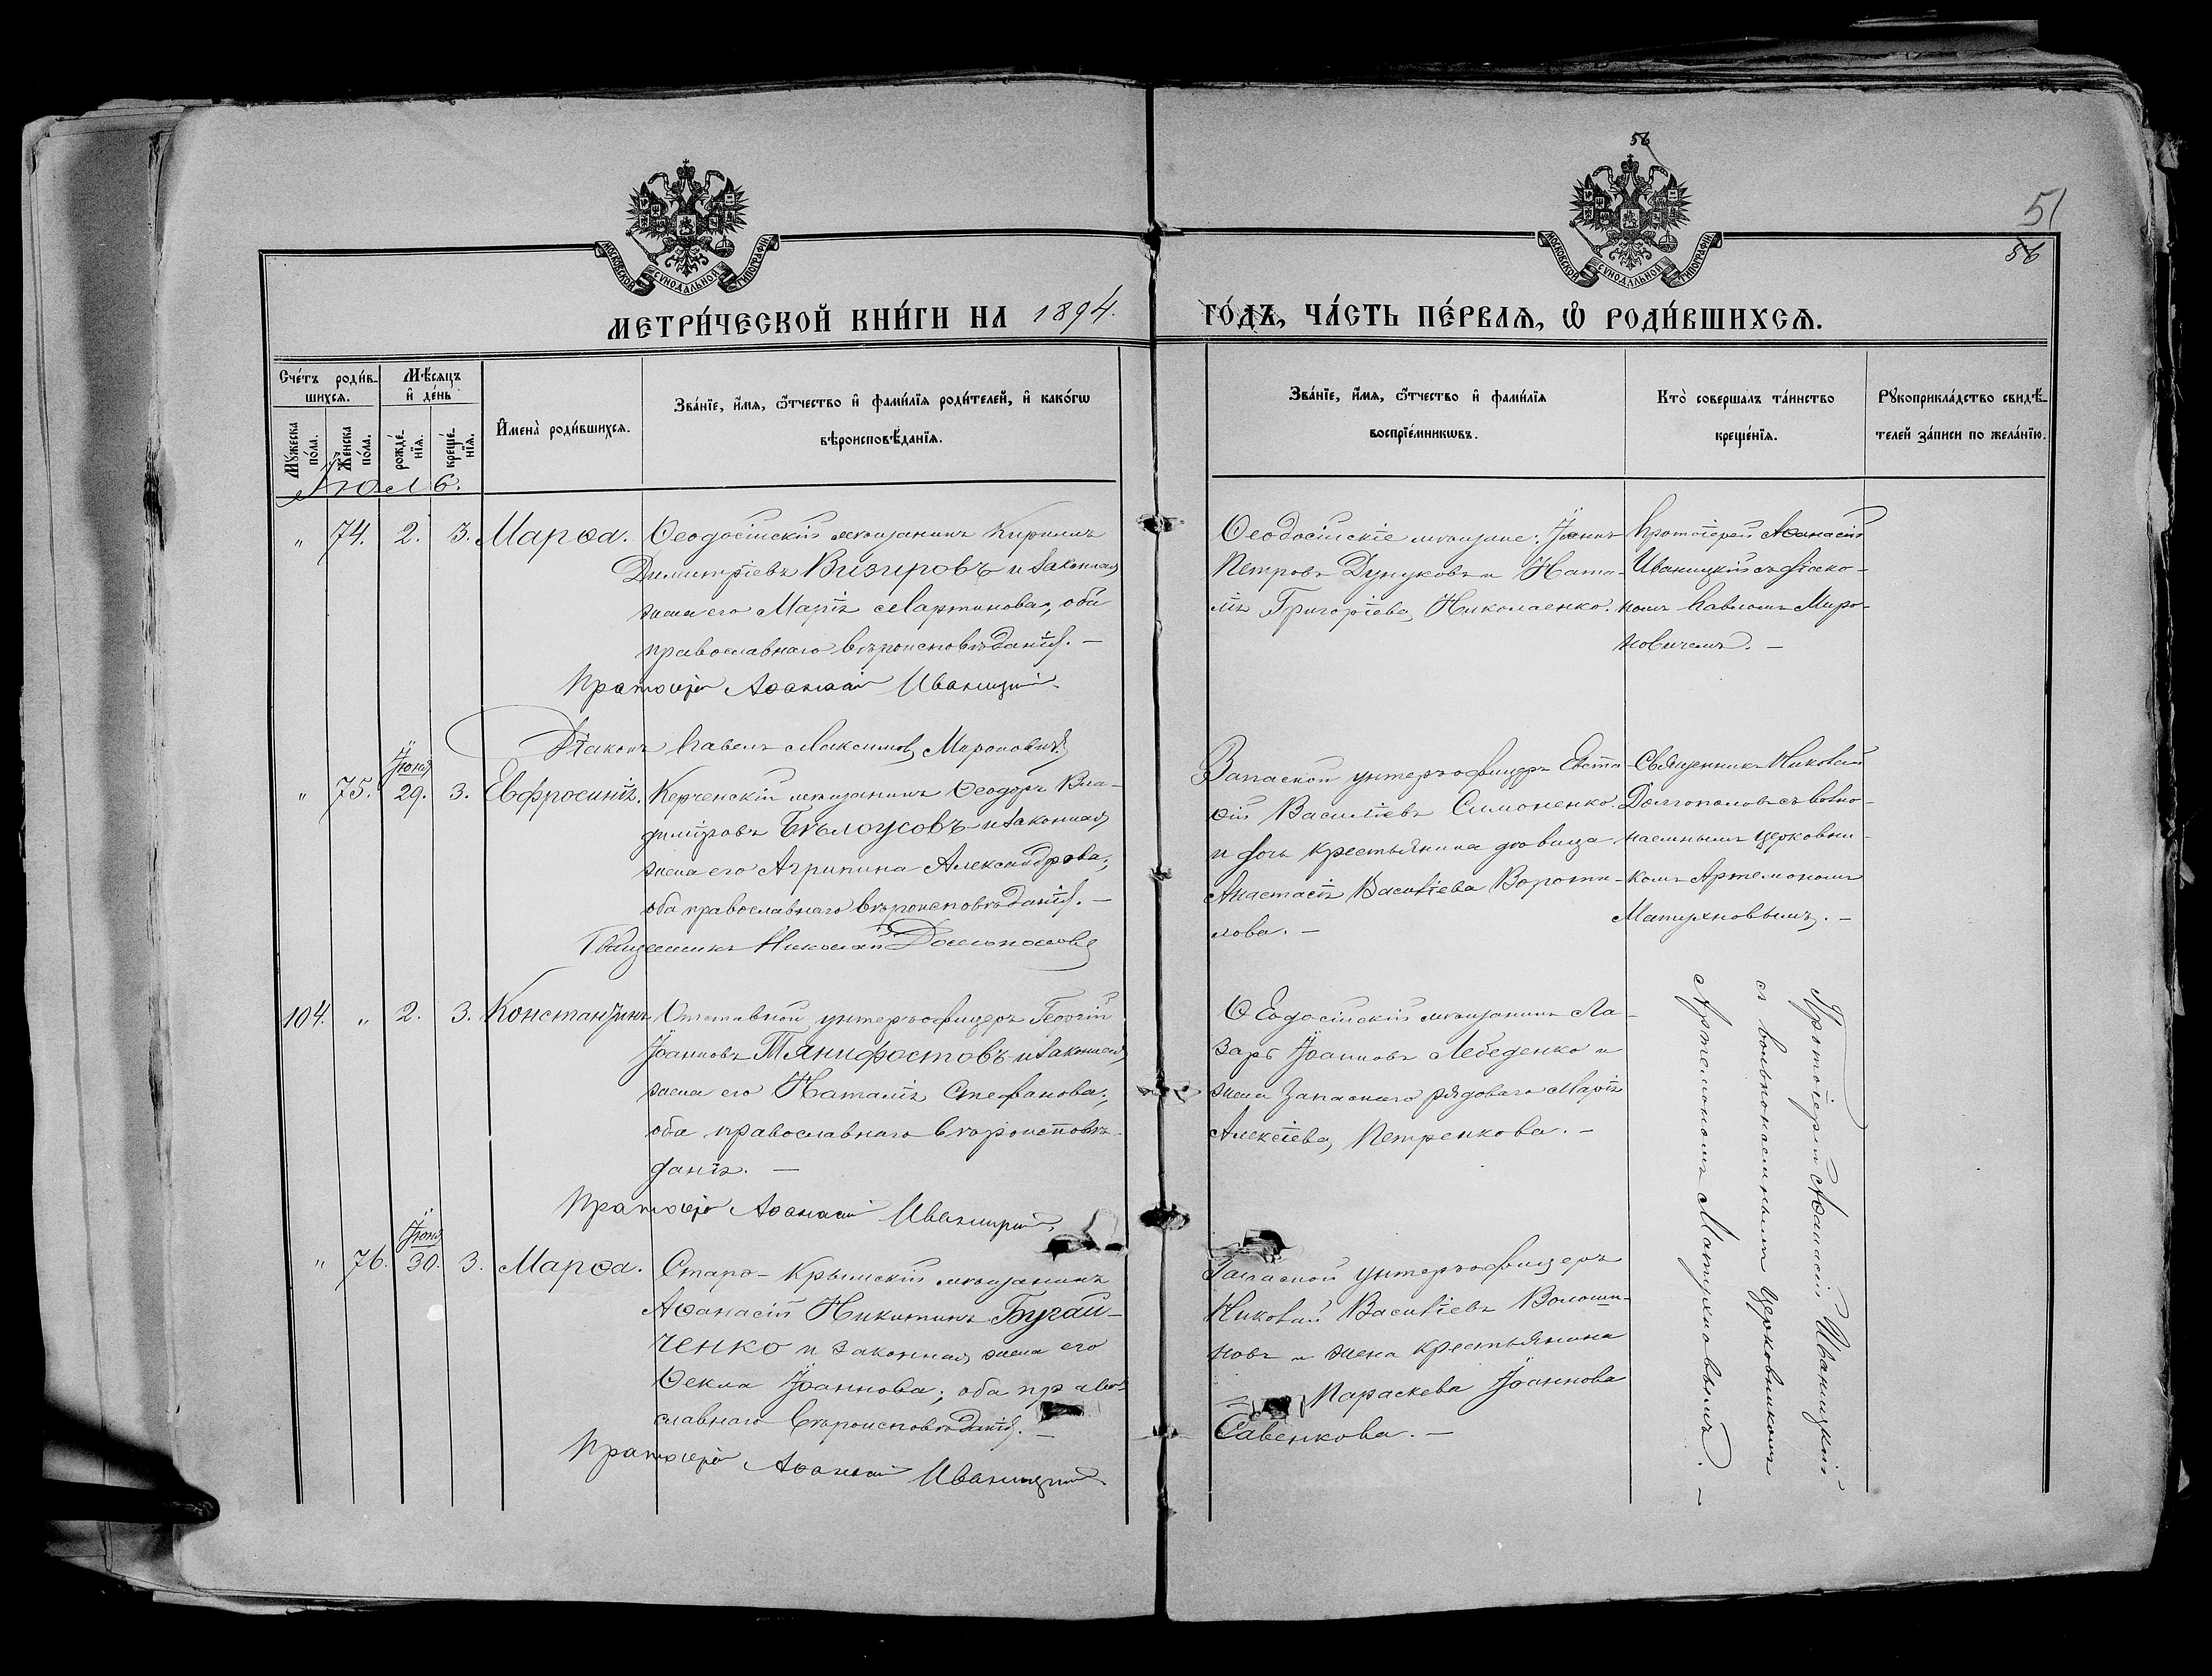 56
51
56
МОСКОВСКОЙ СѴНОДАЛЬНОЙ ТИПОГРАФІИ
МОСКОВСКОЙ СѴНОДАЛЬНОЙ ТИПОГРАФІИ
МЕТРИ́ЧЕСКОЙ КНИ́ГИ НА 1894. ГО́ДЪ, ЧА́СТЬ ПЕ́РВАѦ, Ѡ РОДИ́ВШИХСѦ.
Сче́тъ роди́в-
шихсѧ.
Мꙋ́жеска по́ла.
Же́нска по́ла.
Мѣ́сѧцъ и҆ де́нь
рожде́-
нїѧ.
креще́-
нїѧ.
И҆мена̀ роди́вшихсѧ.
Зва́нїе, и҆́мѧ, ѻ҆́тчество и҆ фами́лїѧ роди́телей, и҆ како́гѡ
вѣроисповѣ́данїѧ.
Зва́нїе, и҆́мѧ, ѻ҆́тчество и҆ фами́лїѧ
воспрїе́мникѡвъ.
Кто̀ соверша́лъ та́инство
креще́нїѧ.
Рꙋкоприкла́дство свидѣ́-
телей за́писи по жела́нїю.
Іюль.
" 74. 2. 3. Марѳа. Ѳеодосійскій мѣщанинъ Кириллъ
Димитріевъ Визировъ и законная
жена его Марія Мартинова, оба
православнаго вѣроисповѣданія. —
Протоіерей Аѳанасій Иваницкій.
Діаконъ Павелъ Максимовъ Мироновичъ
Ѳеодосійскіе мѣщане: Іоаннъ
Петровъ Дунуковъ и Ната-
лія Григоріева Николаенко.
Протоіерей Аѳанасій
Иваницкій съ діако-
номъ Павломъ Миро-
новичемъ. —
" 75. Іюня 29. 3. Евфросинія. Керченскій мѣщанинъ Ѳеодоръ Вла-
диміровъ Бѣлоусовъ и законная
жена его Агрипина Александрова;
оба православнаго вѣроисповѣданія. —
Священникъ Николай Долгополовъ
Запасной унтеръ-офицеръ Евста-
ѳій Василіевъ Симоненко
и дочь крестьянина дѣвица
Анастасія Василіева Вороти-
лова. —
Священникъ Николай
Долгополовъ съ вольно-
наемнымъ церковни-
комъ Артемономъ
Матухновымъ. —
104. " 2. 3. Константинъ Отставной унтеръ-офицеръ Георгій
Іоанновъ Танифостовъ и законная
жена его Наталія Стефанова;
оба православнаго вѣроисповѣ-
данія. —
Протоіерей Аѳанасій Иваницкій.
Ѳеодосійскій мѣщанинъ Ла-
зарь Іоанновъ Лебеденко и
жена запаснаго рядоваго Марія
Алексіева Петренкова. —
Протоіерей Аѳанасій Иваницкій
съ вольнонаемнымъ церковникомъ
Артемономъ Матухновымъ. —
" 76. Іюня 30. 3. Марѳа. Старо-Крымскій мѣщанинъ
Аѳанасій Никитинъ Бугай-
ченко и законная жена его
Ѳекла Іоаннова; оба право-
славнаго вѣроисповѣданія. —
Протоіерей Аѳанасій Иваницкій
Запасной унтеръ-офицеръ
Николай Василіевъ Волоши-
новъ и жена крестьянина
Параскева Іоаннова
Савенкова. —